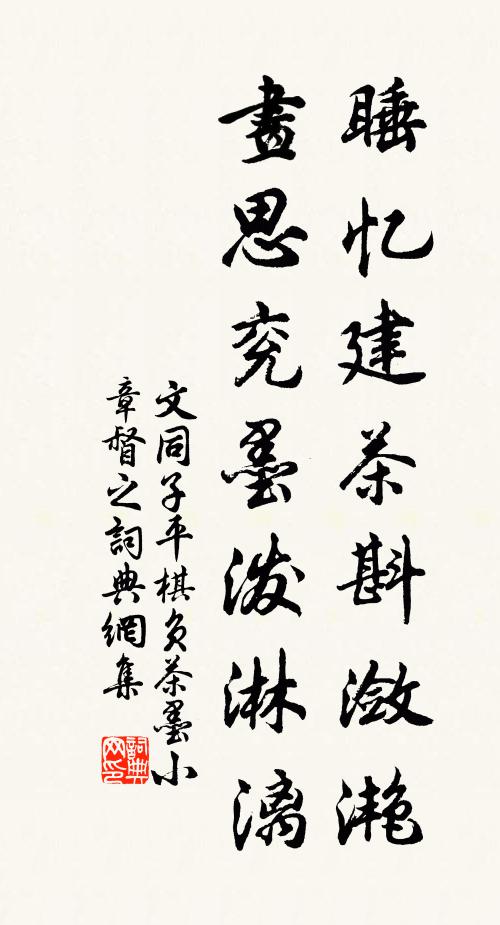 睡忆建茶斟潋滟
畫思兖墨泼淋漓
文同子平棋负茶墨小
章督之詞典網集
詞典网印